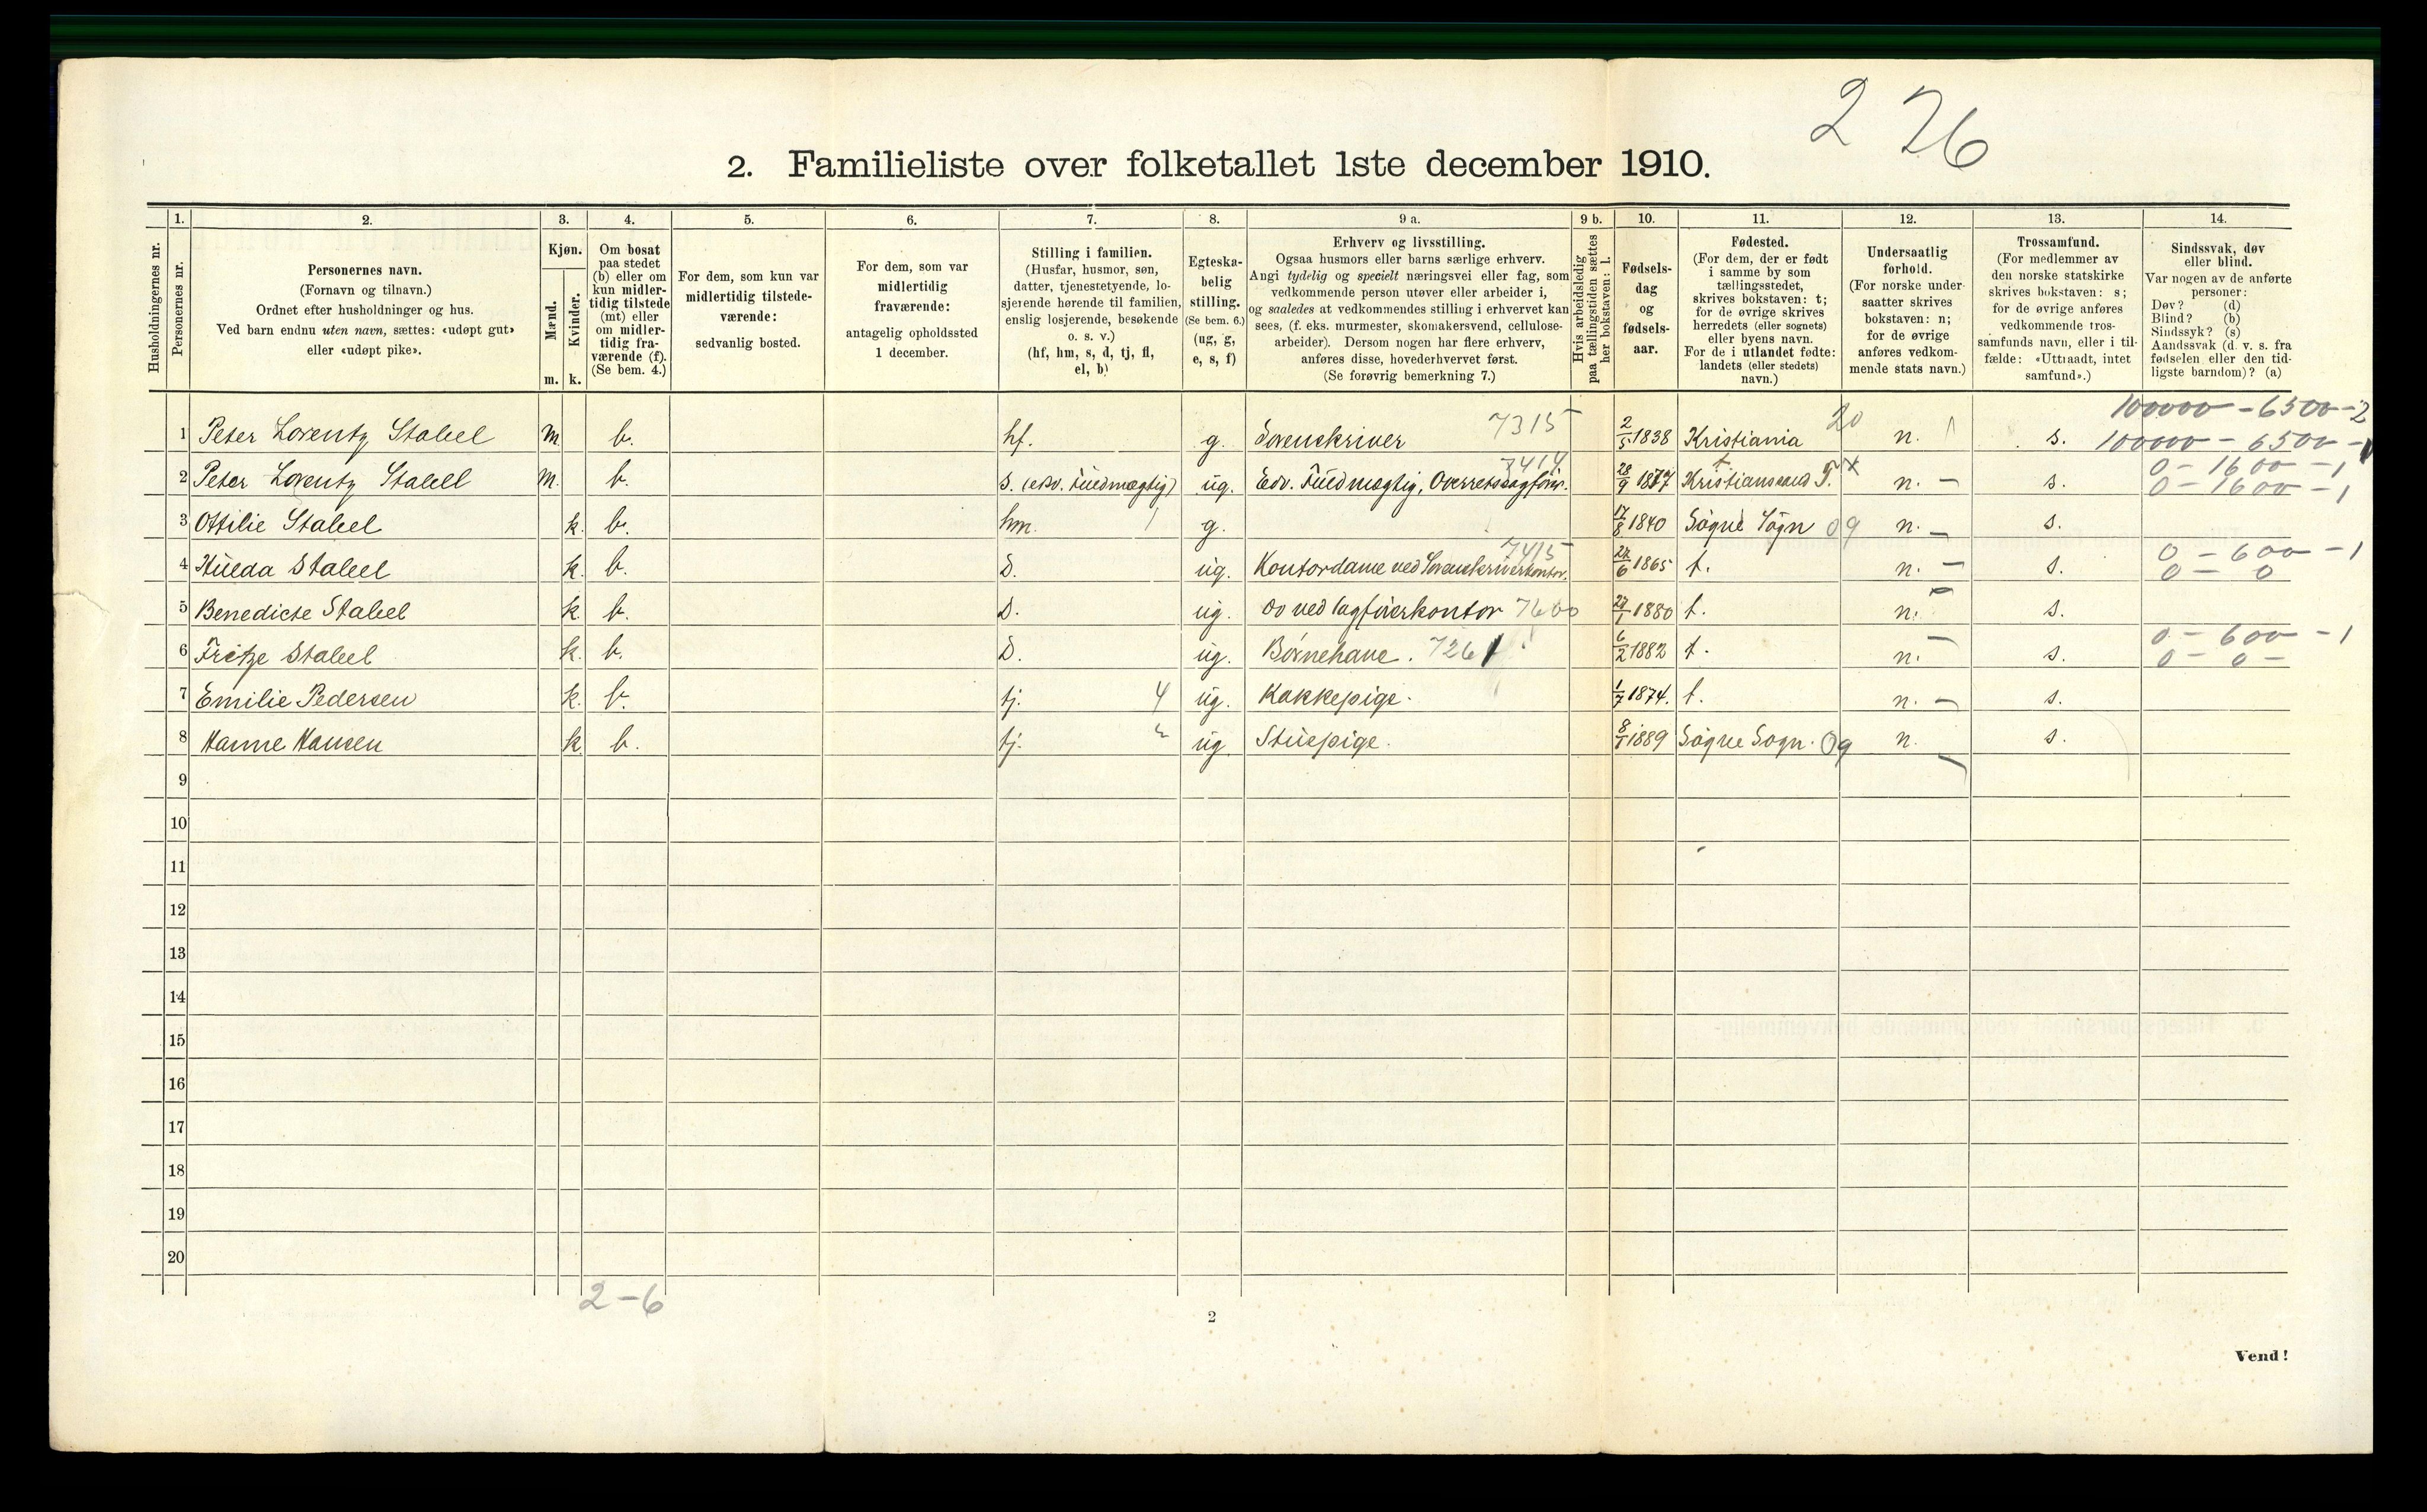 2 26
2. Familieliste over folketallet 1ste december 1910.
Husholdningernes nr. | 1. Personernes nr. | 2. Personernes navn. (Fornavn og tilnavn.) Ordnet efter husholdninger og hus. Ved barn endnu uten navn, sættes: «udøpt gut» eller «udøpt pike». | 3. Kjøn. Mænd. m. Kvinder. k. | 4. Om bosat paa stedet (b) eller om kun midlertidig tilstede (mt) eller om midlertidig fraværende (f). (Se bem. 4.) | 5. For dem, som kun var midlertidig tilstedeværende: sedvanlig bosted. | 6. For dem, som var midlertidig fraværende: antagelig opholdssted 1 december. | 7. Stilling i familien. (Husfar, husmor, søn, datter, tjenestetyende, losjerende hørende til familien, enslig losjerende, besøkende o. s. v.) (hf, hm, s, d, tj, fl, el, b) | 8. Egteskabelig stilling. (Se bem. 6.) (ug, g, e, s, f) | 9 a. Erhverv og livsstilling. Ogsaa husmors eller barns særlige erhverv. Angi tydelig og specielt næringsvei eller fag, som vedkommende person utøver eller arbeider i, og saaledes at vedkommendes stilling i erhvervet kan sees, (f. eks. murmester, skomakersvend, cellulosearbeider). Dersom nogen har flere erhverv, anføres disse, hovederhvervet først. (Se forøvrig bemerkning 7.) | 9 b. Hvis arbeidsledig paa tællingstiden sættes her bokstaven: l. | 10. Fødselsdag og fødselsaar. | 11. Fødested. (For dem, der er født i samme by som tællingsstedet, skrives bokstaven: t; for de øvrige skrives herredets (eller sognets) eller byens navn. For de i utlandet fødte: landets (eller stedets) navn.) | 12. Undersaatlig forhold. (For norske undersaatter skrives bokstaven: n; for de øvrige anføres vedkommende stats navn.) | 13. Trossamfund. (For medlemmer av den norske statskirke skrives bokstaven: s; for de øvrige anføres vedkommende trossamfunds navn, eller i tilfælde: «Uttraadt, intet samfund».) | 14. Sindssvak, døv eller blind. Var nogen av de anførte personer: Døv? (d) Blind? (b) Sindssyk? (s) Aandssvak (d. v. s. fra fødselen eller den tidligste barndom)? (a)
100000 - 6500 - 2
1 Peter Lorentz Stabel M. b. hf. g. Sorenskriver 7315 2/5 1838 Kristiania 20 n. s. 100000 - 6500 - 1
2 Peter Lorentz Stabell M. b. s. (edv. Fuldmægtig) ug. Edv. Fuldmægtig, Overretssagfører. 7414 28/9 1877 Kristianssand t n. - s. 0 - 1600 - 1
0 - 1600 - 1
3 Ottilie Stabel k. b. hm. 1 g. 17/8 1840 Søgne Sogn 09 n. - s.
4 Hulda Stabel k. b. D. ug. Kontordame ved Sorenskriverkontor. 7415 6 1865 t. n. - s. 0 - 600 - 1
0 - 0
5 Benedicte Stabel k. b. D. ug. do ved sagførerkontor 7600 27/1 1880 t. n. - s.
6 Fritze Stabel k. b. D. ug. Børnehave. 7261 6/2 1882 t. n. - s. 0 - 600 - 1
0 - 0 -
7 Emilie Pedersen k. b. tj. 4 ug. Kokkepige. 1/7 1874. t. n. - s.
8 Hanne Hansen k b. tj. ug. Stuepige. 8/1 1889 Søgne Sogn. 09 n. s.
9
10
11
12
13
14
15
16
17
18
19
20
2 - 6
2
Vend!